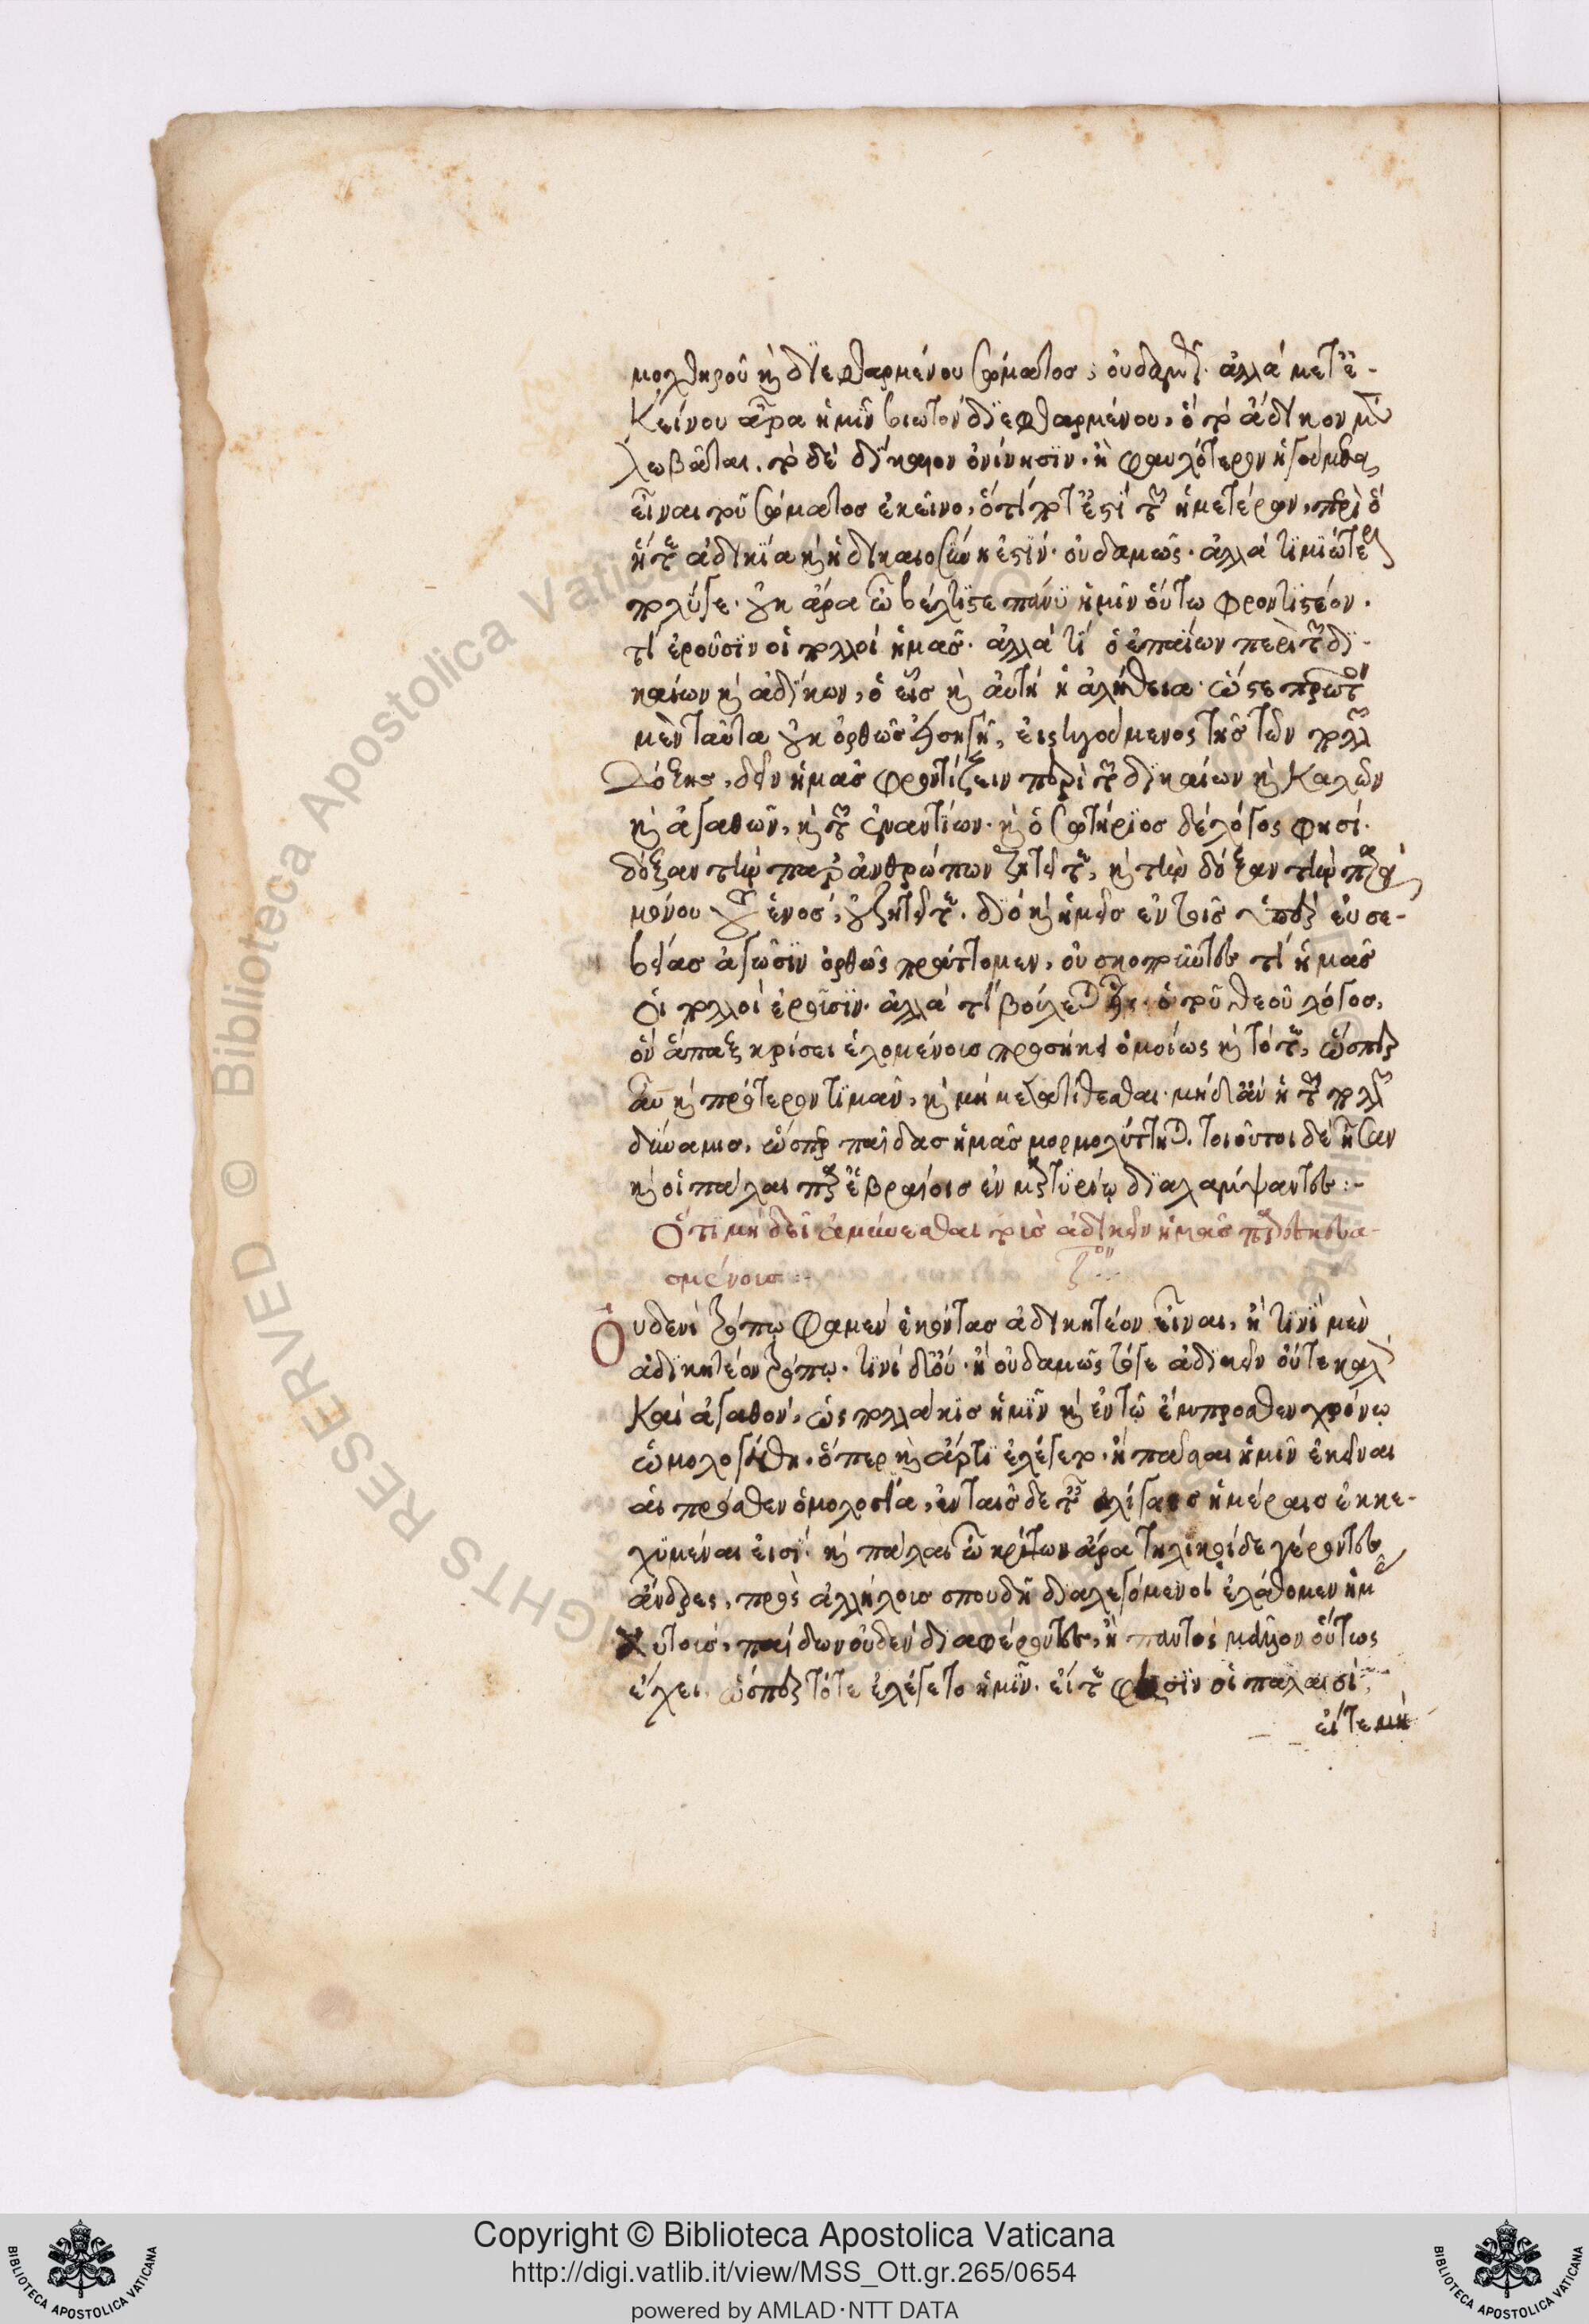 μοχθηροῦ καὶ διεφθαρμένου σώματος; οὐδαμῶς. ἀλλὰ μετ' ἐ-
κείνου ἄρα ἡμῖν βιωτὸν διεφθαρμένου, ὃ τὸ ἄδικον μὲν
λωβᾶται, τὸ δὲ δίκαιον ὀνίνησιν. ἢ φαυλότερον ἡγούμεθα
εἶναι τοῦ σώματος ἐκεῖνο, ὅτί ποτ' ἐστὶ τῶν ἡμετέρων, περὶ ὃ
ἥ τε ἀδικία καὶ ἡ δικαιοσύνη ἐστίν. οὐδαμῶς. ἀλλὰ τιμιώτερον
πολύ γε. οὐκ ἄρα ὦ βέλτιστε πάνυ ἡμῖν οὕτω φροντιστέον.
τί ἐροῦσιν οἱ πολλοὶ ἡμᾶς. ἀλλὰ τί ὁ ἐπαΐων περὶ τῶν δι-
καίων καὶ ἀδίκων, ὁ εἷς καὶ αὐτὴ ἡ ἀλήθεια. ὥστε πρῶτον
μὲν ταῦτα οὐκ ὀρθῶς εἰσηγῇ, εἰσηγούμενος τῆς τῶν πολλῶν
δόξης, δεῖν ἡμᾶς φροντίζειν περὶ τῶν δικαίων καὶ καλῶν
καὶ ἀγαθῶν, καὶ τῶν ἐναντίων. καὶ ὁ σωτήριος δὲ λόγος φησί.
δόξαν τὴν παρ' ἀνθρώπων ζητεῖτε, καὶ τὴν δόξαν τὴν παρὰ
μόνου τοῦ ἑνός, οὐ ζητεῖτε. διὸ καὶ ἡμεῖς ἐν τοῖς ὑπὲρ εὐσε-
βείας ἀγῶσιν ὀρθῶς πράττομεν, οὐ σκοποῦντες τί ἡμᾶς
οἱ πολλοὶ ἐροῦσιν. ἀλλὰ τί βούλεται ὁ τοῦ θεοῦ λόγος,
ὃν ἅπαξ κρίσει ἑλομένοις προσήκει ὁμοίως καὶ τότε, ὥσπερ
καὶ πρότερον τιμᾶν, καὶ μὴ μετατίθεσθαι. μηδ' ἂν ἡ τῶν πολλῶν
δύναμις, ὥσπερ παῖδας ἡμᾶς μορμολύττηται. τοιοῦτοι δὲ ἦσαν
καὶ οἱ πάλαι παρ' ἑβραίοις ἐν μαρτυρίῳ διαλάμψαντες:-
Ὅτι μὴ δεῖ ἀμύνεσθαι τοὺς ἀδικεῖν ἡμᾶς προβεβια-
σμένους:-
Οὐδενὶ τρόπῳ φαμὲν ἑκόντας ἀδικητέον εἶναι, ἢ τινὶ μὲν
ἀδικητέον τρόπῳ. τινὶ δ' οὔ. ἢ οὐδαμῶς τό γε ἀδικεῖν οὔτε καλὸν
καὶ ἀγαθόν, ὡς πολλάκις ἡμῖν καὶ ἐν τῷ ἔμπροσθεν χρόνῳ
ὡμολογήθη. ὅπερ καὶ ἄρτι ἐλέγετο. ἢ πᾶσαι ἡμῖν ἐκεῖναι
αἱ πρόσθεν ὁμολογία, ἐν ταῖσδε τῶν ὀλίγαις ἡμέραις ἐκκε-
χυμέναι εἰσί. καὶ πάλαι ὦ κρίτων ἄρα τηλικοίδε γέροντες
ἄνδρες, πρὸς ἀλλήλους σπουδῇ διαλεγόμενοι ἐλάθομεν ἡμᾶς
αὐτοὺς, παίδων οὐδὲν διαφέροντες, ἢ παντὸς μᾶλλον οὕτως
ἔχει. ὥσπερ τότε ἐλέγετο ἡμῖν. εἴτε φασὶν οἱ
εἴτε μὴ
Copyright © Biblioteca Apostolica Vaticana
http://digi.vatlib.it/view/MSS_Ott.gr.265/0654
powered by AMLAD·NTT DATA